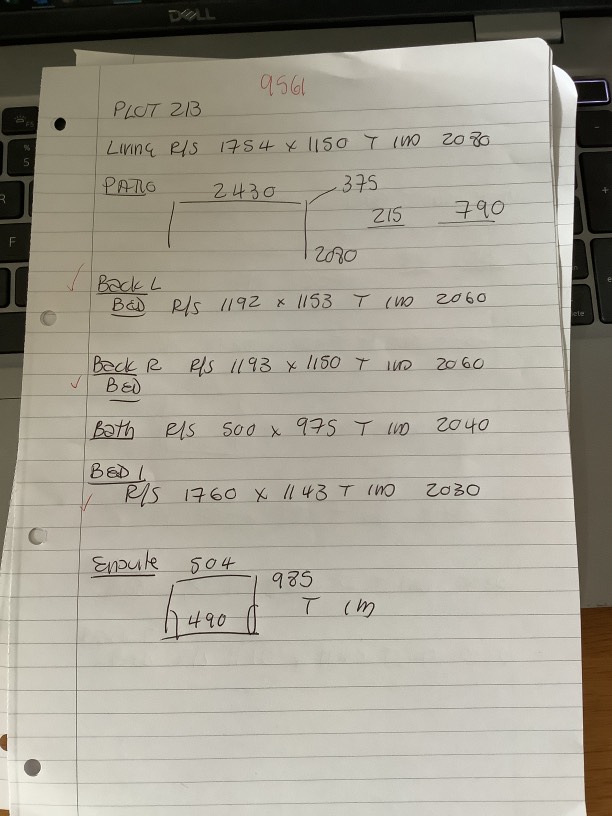 DELL
9561
PLOT 213
Living R/S 1754 x 1150 T IM 2080
PATIO 2430 375
215 790
2080
Back L
BED R/S 1192 x 1153 T IM 2060
Back R R/S 1193 x 1150 T IM 2060
BED
Bath R/S 500 x 975 T IM 2040
BED 1
R/S 1760 x 1143 T IM 2030
Ensuite 504
985
490 T IM